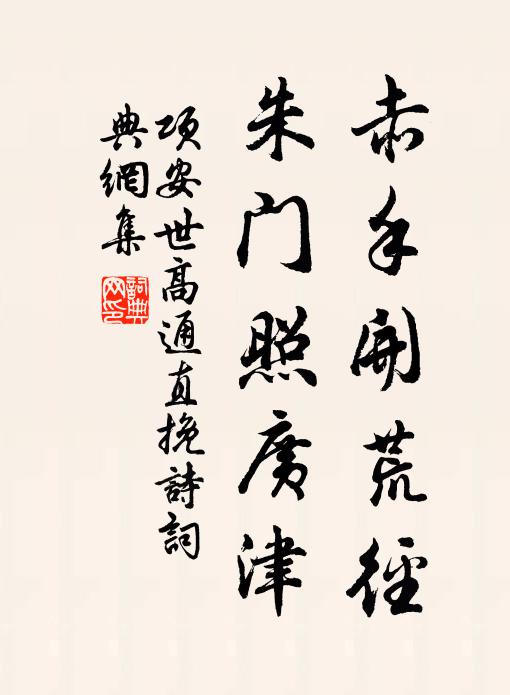 赤手開荒徑
朱門照廣津
項安世高通直挽詩詞
典網集
詞典
网印